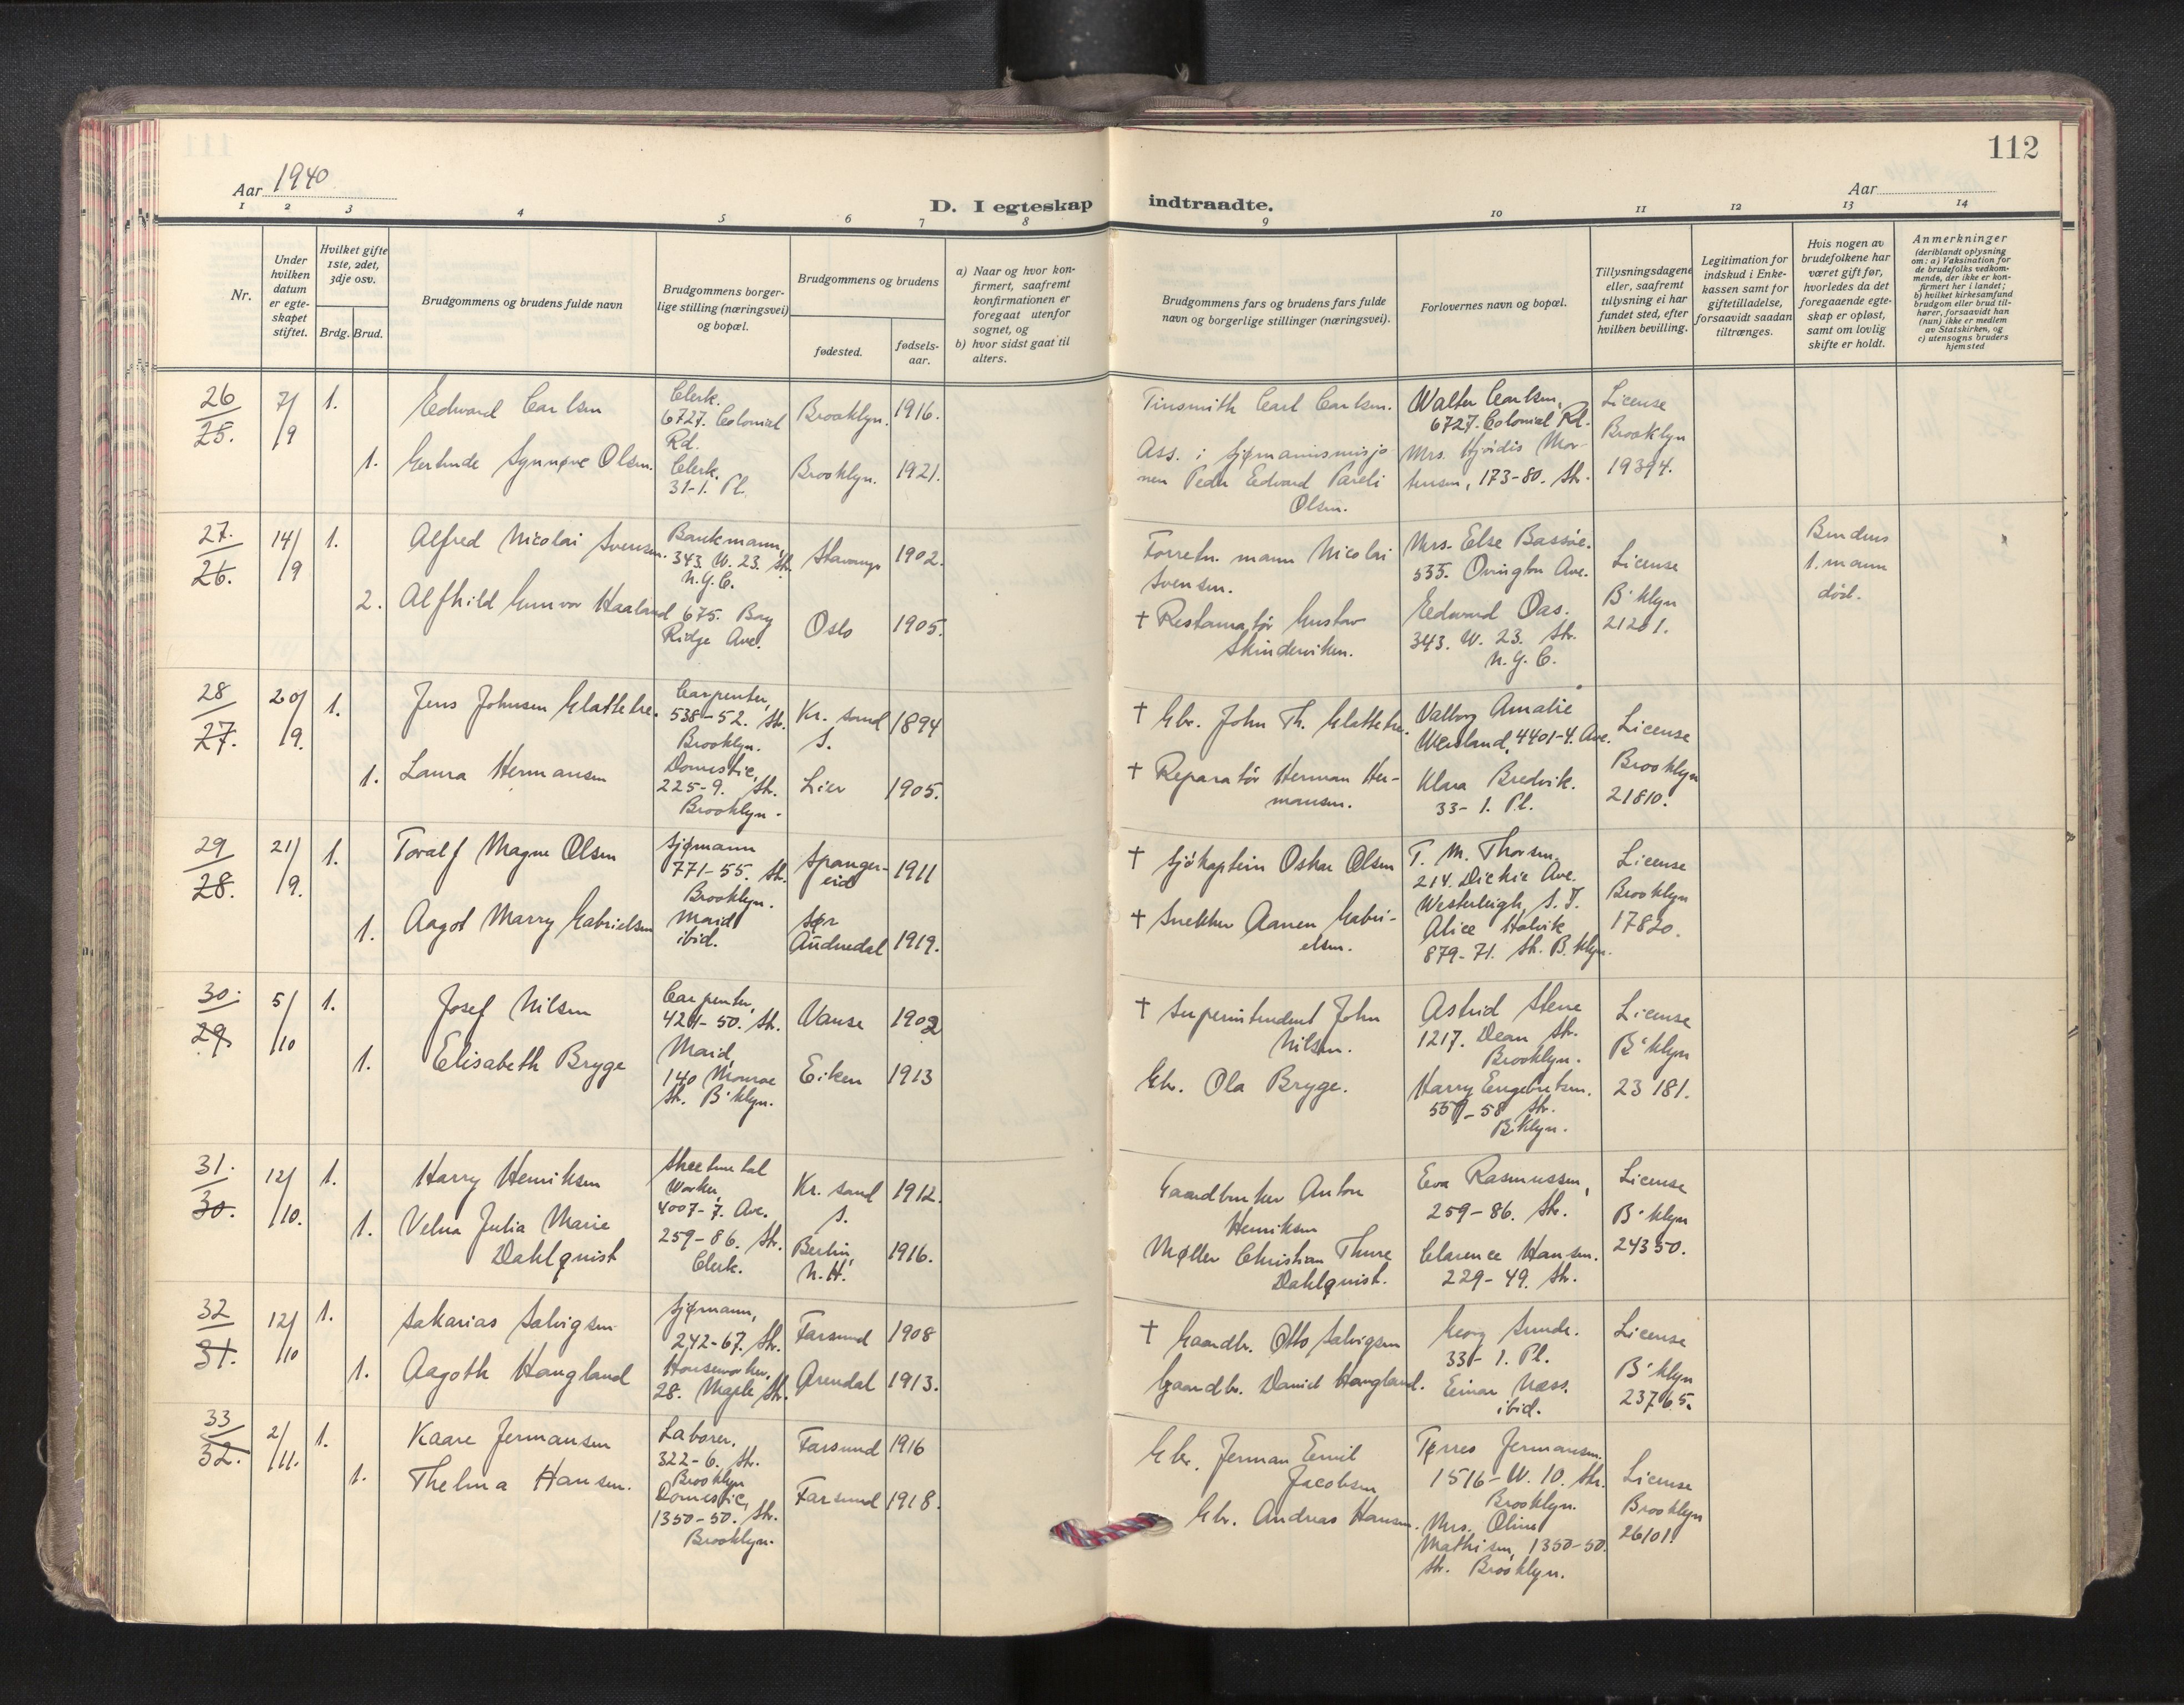 112
Aar 1940
Aar
D. I egteskap indtraadte.
1 2 3 4 5 6 7 8 9 10 11 12 13 14
Nr.
Under hvilken datum er egteskapet stiftet.
Hvilket gifte 1ste, 2det, 3dje osv.
Brdg. Brud.
Brudgommens og brudens fulde navn
Brudgommens borgerlige stilling (næringsvei) og bopæl.
Brudgommens og brudens
fødested.
fødselsaar.
a) Naar og hvor konfirmert, saafremt konfirmationen er foregaat utenfor sognet, og
b) hvor sidst gaat til alters.
Brudgommens fars og brudens fars fulde navn og borgerlige stillinger (næringsvei).
Forlovernes navn og bopæl.
Tillysningsdagene eller, saafremt tillysning ei har fundet sted, efter hvilken bevilling.
Legitimation for indskud i Enkekassen samt for giftetilladelse, forsaavidt saadan tiltrænges.
Hvis nogen av brudefolkene har været gift før, hvorledes da det foregaaende egteskap er opløst, samt om lovlig skifte er holdt.
Anmerkninger
(deriblandt oplysning om: a) Vaksination for de brudefolks vedkommende, der ikke er konfirmert her i landet; b) hvilket kirkesamfund brudgom eller brud tilhører, forsaavidt han (hun) ikke er medlem av Statskirken, og c) utensogns bruders hjemsted
26
25.
7/9
1.
Edward Carlsen
Clerk.
6727. Colonial Rd.
Brooklyn.
1916.
Tinsmith Carl Carlsen.
Walter Carlsen,
6727. Colonial Rd.
License
Brooklyn
19394.
1.
Gertrude Synnøve Olsen.
Clerk.
31-1. Pl.
Brooklyn.
1921.
Ass. i sjømannsmisjo
nen Peder Edvard Pareli
Olsen.
Mrs. Hjördis Mor-
tensen, 173-80. Str.
27.
26.
14/9
1.
Alfred Nicolai Svensen.
Bankmann,
343. W. 23. Str.
N.Y.C.
Stavanger
1902.
Forretn. mann Nicolai
Svensen.
Mrs. Else Bassøe.
535. Ovington Ave.
License
B'klyn
21201.
Brudens
1. mann
død.
2.
Alfhild Gunvor Haaland
675. Bay
Ridge Ave.
Oslo
1905.
† Restauratør Gustav
Skinderviken.
Edward Oas.
343. W. 23. Str.
N.Y.C.
28
27.
20/9.
1.
Jens Johnsen Glattetre.
Carpenter,
538-52. Str.
Brooklyn.
Kr. sand
S.
1894
† Gbr. John Th. Glattetre.
Valborg Amalie
Wersland, 4401-4. Ave.
License
Brooklyn
21810.
1.
Laura Hermansen
Domestic,
225-9. Str.
Brooklyn.
Lier
1905.
† Reparatør Herman Her-
mansen.
Klara Bredvik.
33-1. Pl.
29
28.
21/9.
1.
Toralf Magne Olsen
Sjømann
771-55. Str.
Brooklyn.
Spanger-
eid
1911
† Sjökaptein Oskar Olsen
T. M. Thorsen,
214. Dickie Ave.
Westerleigh, S. I.
License
Brooklyn
17820.
1.
Aagot Marry Gabrielsen
Maid
ibid.
Sør
Audnedal
1919.
† Snekker Aanen Gabri-
elsen.
Alice Holvik
879-71. Str. B.klyn.
30.
29.
5/10
1.
Josef Nilsen
Carpenter,
424-50. Str.
Vanse
1902
† Superintendent John
Nilsen.
Astrid Stene
1217. Dean Str.
Brooklyn.
License
B'klyn
23181.
1.
Elisabeth Bryge
Maid,
140 Monroe
Str. B'klyn.
Eiken
1913
Gbr. Ola Bryge.
Harry Engebretsen.
559-58 Str.
B.klyn.
31.
30.
12/10.
1.
Harry Henriksen
Sheetmetal
Worker,
4007-7. Ave.
Kr. sand
S.
1912.
Gaardbruker Anton
Henriksen
Eva Rasmussen,
259-86. Str.
License
B'klyn
24350.
1.
Velna Julia Marie
Dahlquist
259-86. Str.
Clerk.
Berlin,
N.H.
1916.
Møller Christian Thure
Dahlquist.
Clarence Hansen.
229-49. Str.
32
31.
12/10
1.
Sakarias Salvigsen
Sjømann,
242-67. Str.
Farsund
1908
† Gaardbr. Otto Salvigsen
Georg Sunde.
33-1. Pl.
License
B'klyn
23765.
1.
Aagoth Haugland
Houseworker,
28. Maple Str.
Arendal
1913.
Gaardbr. Daniel Haugland.
Einar Næss.
ibid.
33
32.
2/11.
1.
Kaare Jermansen
Laborer,
322-6. Str.
Brooklyn
Farsund
1916
Gbr. Jerman Emil
Jacobsen
Tørres Jermansen.
1516-W. 10. Str.
Brooklyn.
License
Brooklyn
26101.
1.
Thelma Hansen.
Domestic,
1350-50. Str.
Brooklyn.
Farsund
1918.
Gbr. Andreas Hansen.
Mrs. Oline
Mathisen, 1350-50.
Str. Brooklyn.